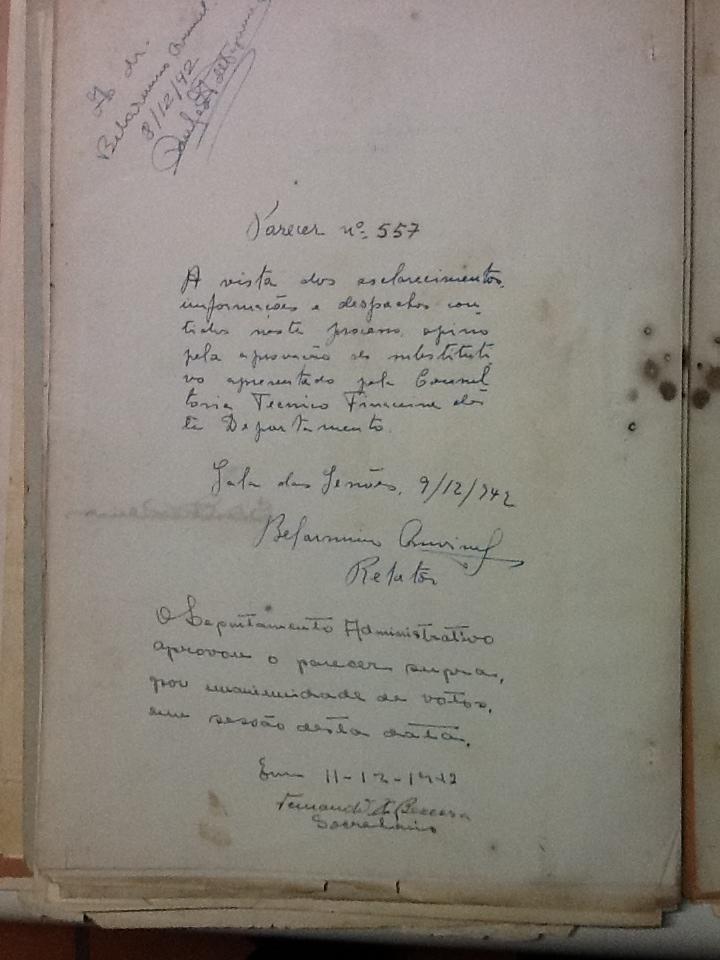 Ao dr.
Belarmino
8/12/42
Parecer nº 557
A vista dos esclarecimentos,
informações e despachos con
tidos neste processo, opino
pela aprovação do substituti
vo apresentado pela Consul
toria Tecnico Financeira dês
te Departamento.
Sala das Sessões, 9/12/942
Belarmino
Relator
O Departamento Administrativo
aprovou o parecer supra,
por unanimidade de votos,
em sessão desta data.
Em 11-12-1942
Fernando Bezerra
Secretario